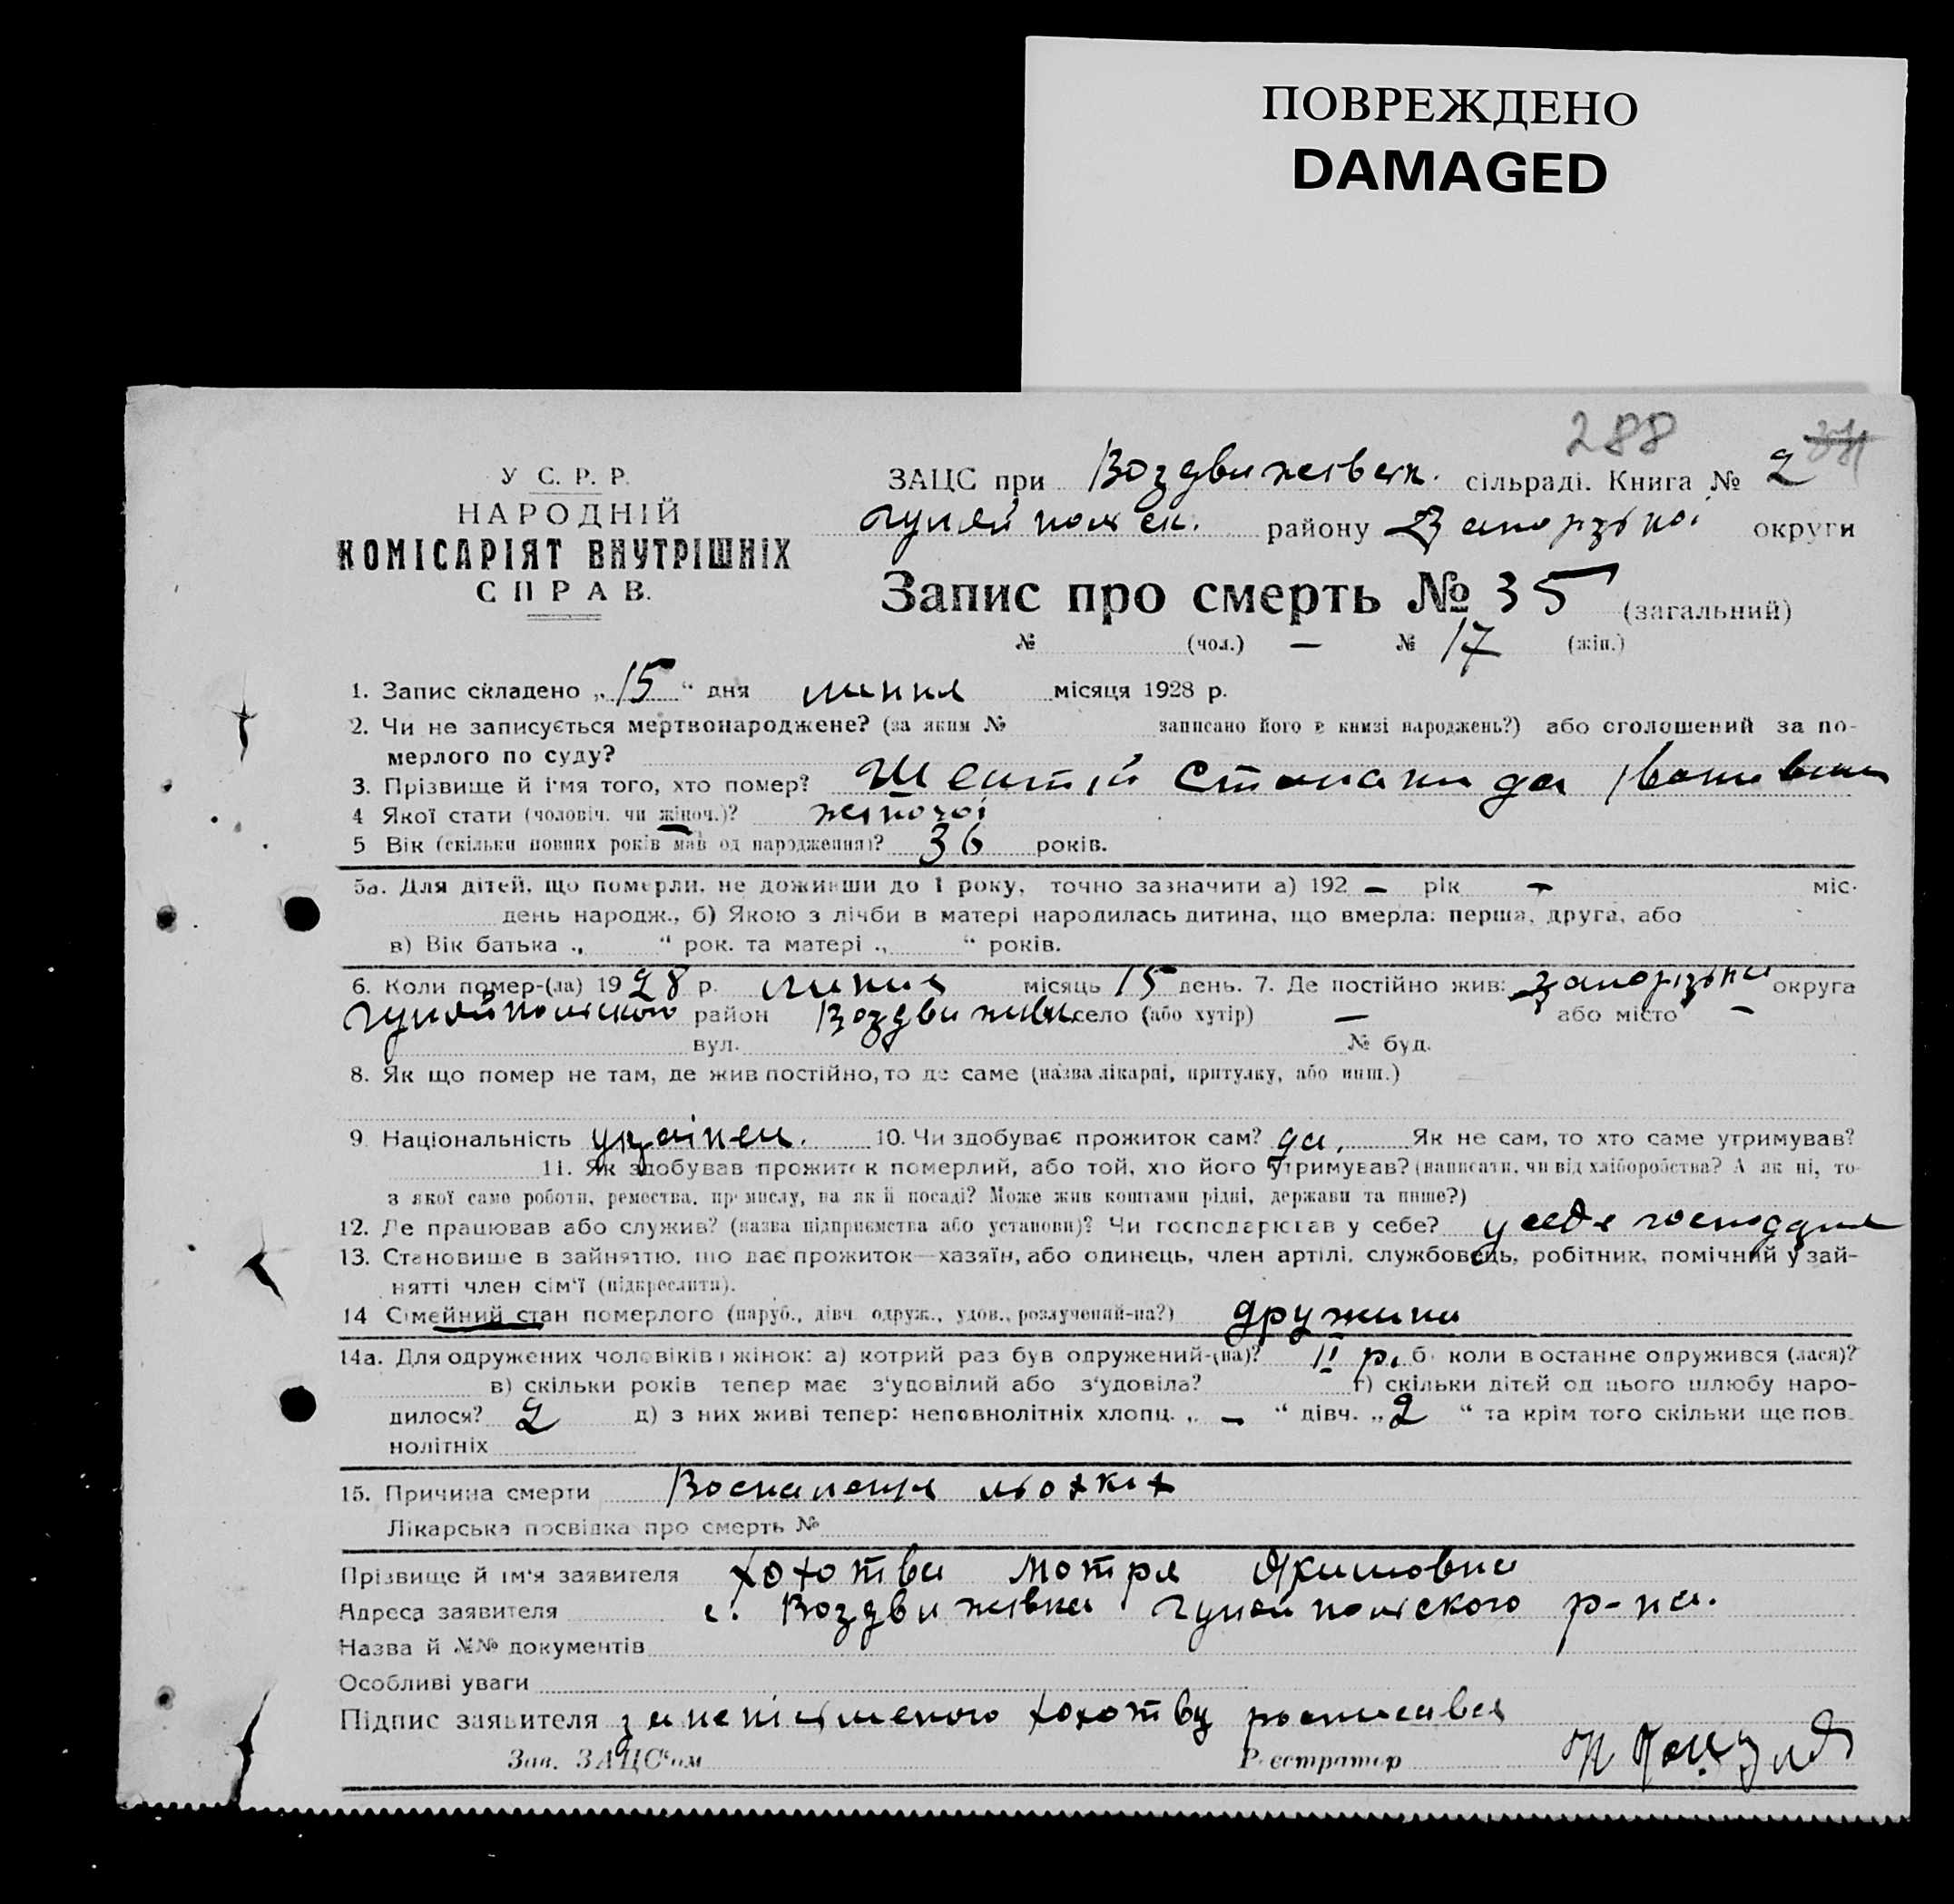 ПОВРЕЖДЕНО
DAMAGED
288
У С. Р. Р.
НАРОДНІЙ
КОМІСАРІЯТ ВНУТРІШНІХ
СПРАВ.
ЗАЦС при Воздвижівськ. сільраді. Книга № 2
Гуляйпольськ. району Запорізької округи
Запис про смерть № 35 (загальний)
№ (чол.) — № 17 (жін.)
1. Запис складено „15“ дня липня місяця 1928 р.
2. Чи не записується мертвонароджене? (за яким № записано його в книзі народжень?) або оголошений за по-
мерлого по суду?
3. Прізвище й ім'я того, хто помер? Степанида Іванівна
4 Якої стати (чоловіч. чи жіноч.)? жіночої
5 Вік (скільки повних років мав од народження)? 36 років.
5а. Для дітей, що померли, не доживши до 1 року, точно зазначити а) 192 — рік — міс.
день народж., б) Якою з лічби в матері народилась дитина, що вмерла: перша, друга, або
в) Вік батька „ “ рок. та матері „ “ років.
6. Коли помер-(ла) 1928 р. липня місяць 15 день. 7. Де постійно жив: Запорізька округа
Гуляйпольского район Воздвижівка село (або хутір) — або місто —
вул. № буд.
8. Як що помер не там, де жив постійно, то де саме (назва лікарні, притулку, або инш.)
9. Національність українец. 10. Чи здобуває прожиток сам? да, Як не сам, то хто саме утримував?
11. Як здобував прожиток померлий, або той, хто його утримував? (написати, чи від хліборобства? А як ні, то-
з якої саме роботи, ремества, промислу, на якій посаді? Може жив коштами рідні, держави та инше?)
12. Де працював або служив? (назва підприємства або установи)? Чи господарював у себе? у себе
13. Становище в зайняттю, що дає прожиток—хазяїн, або одинець, член артілі, службовець, робітник, помічний у зай-
нятті член сім'ї (підкреслити).
14 Сімейний стан померлого (паруб., дівч. одруж., удов., розлучений-на?) дружина
14а. Для одружених чоловіків і жінок: а) котрий раз був одружений-(на)? II р. б) коли востаннє одружився (лася)?
в) скільки років тепер має з'удовілий або з'удовіла? г) скільки дітей од цього шлюбу наро-
дилося? 2 д) з них живі тепер: неповнолітніх хлопц. „ — “ дівч. „ 2 “ та крім того скільки ще пов-
нолітніх
15. Причина смерти Воспаления льохких
Лікарська посвідка про смерть №
Прізвище й ім'я заявителя Хохотва Мотря Якимовна
Адреса заявителя с. Воздвижівка Гуляйпольского р-на.
Назва й №№ документів
Особливі уваги
Підпис заявителя за непісьменого Хохотву росписався
Зав. ЗАЦС'ом Реєстратор